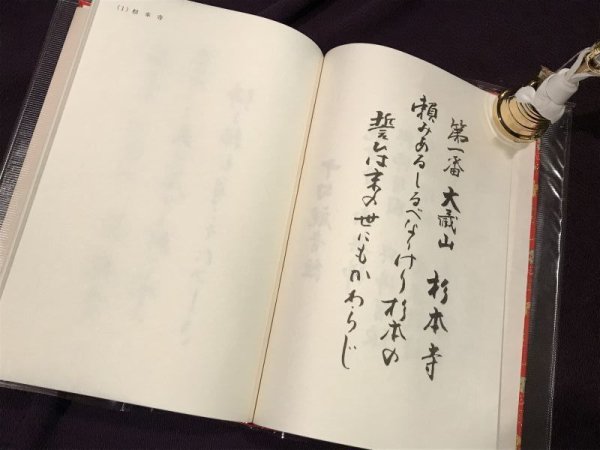 第一番 大蔵山 杉本寺
頼みあるしるべなりけり杉本の
誓ひは末の世にもかわらじ
(1) 杉本寺